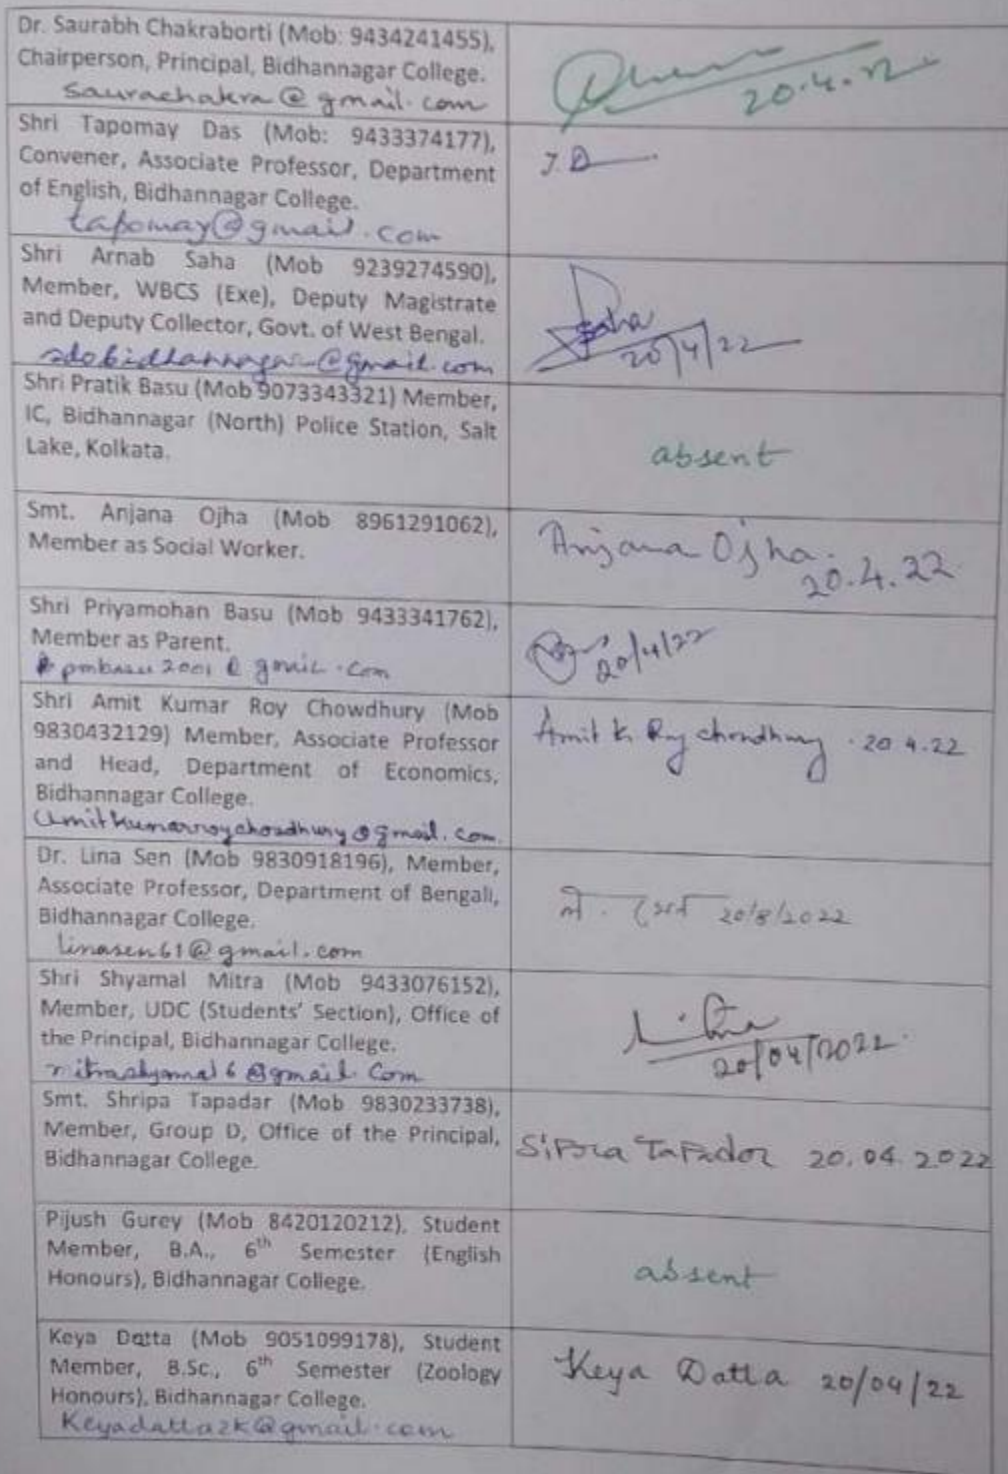 Dr. Saurabh Chakraborti (Mob: 9434241455),
Chairperson, Principal, Bidhannagar College.
saurachakra@gmail.com
20.4.22
Shri Tapomay Das (Mob: 9433374177),
Convener, Associate Professor, Department
of English, Bidhannagar College.
tapomay@gmail.com
T. D
Shri Arnab Saha (Mob 9239274590),
Member, WBCS (Exe), Deputy Magistrate
and Deputy Collector, Govt. of West Bengal.
sdobidhannagar@gmail.com
Saha
20/4/22
Shri Pratik Basu (Mob 9073343321) Member,
IC, Bidhannagar (North) Police Station, Salt
Lake, Kolkata.
absent
Smt. Anjana Ojha (Mob 8961291062),
Member as Social Worker.
Anjana Ojha.
20.4.22
Shri Priyamohan Basu (Mob 9433341762),
Member as Parent.
pmbasu2001@gmail.com
20/4/22
Shri Amit Kumar Roy Chowdhury (Mob
9830432129) Member, Associate Professor
and Head, Department of Economics,
Bidhannagar College.
amitkumarroychoudhury@gmail.com
Amit K Roy Chowdhury . 20.4.22
Dr. Lina Sen (Mob 9830918196), Member,
Associate Professor, Department of Bengali,
Bidhannagar College.
linasen61@gmail.com
সেন 20/8/2022
Shri Shyamal Mitra (Mob 9433076152),
Member, UDC (Students' Section), Office of
the Principal, Bidhannagar College.
mitrashyamal6@gmail.com
20/04/2022
Smt. Shripa Tapadar (Mob 9830233738),
Member, Group D, Office of the Principal,
Bidhannagar College.
Sipra Tapador 20.04.2022
Pijush Gurey (Mob 8420120212), Student
Member, B.A., 6th Semester (English
Honours), Bidhannagar College.
absent
Keya Datta (Mob 9051099178), Student
Member, B.Sc., 6th Semester (Zoology
Honours), Bidhannagar College.
Keyadatta2k@gmail.com
Keya Datta 20/04/22